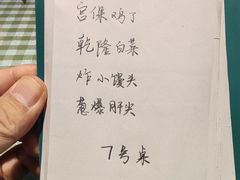 宫保鸡丁
乾隆白菜
炸小馒头
葱爆肝尖
7号桌